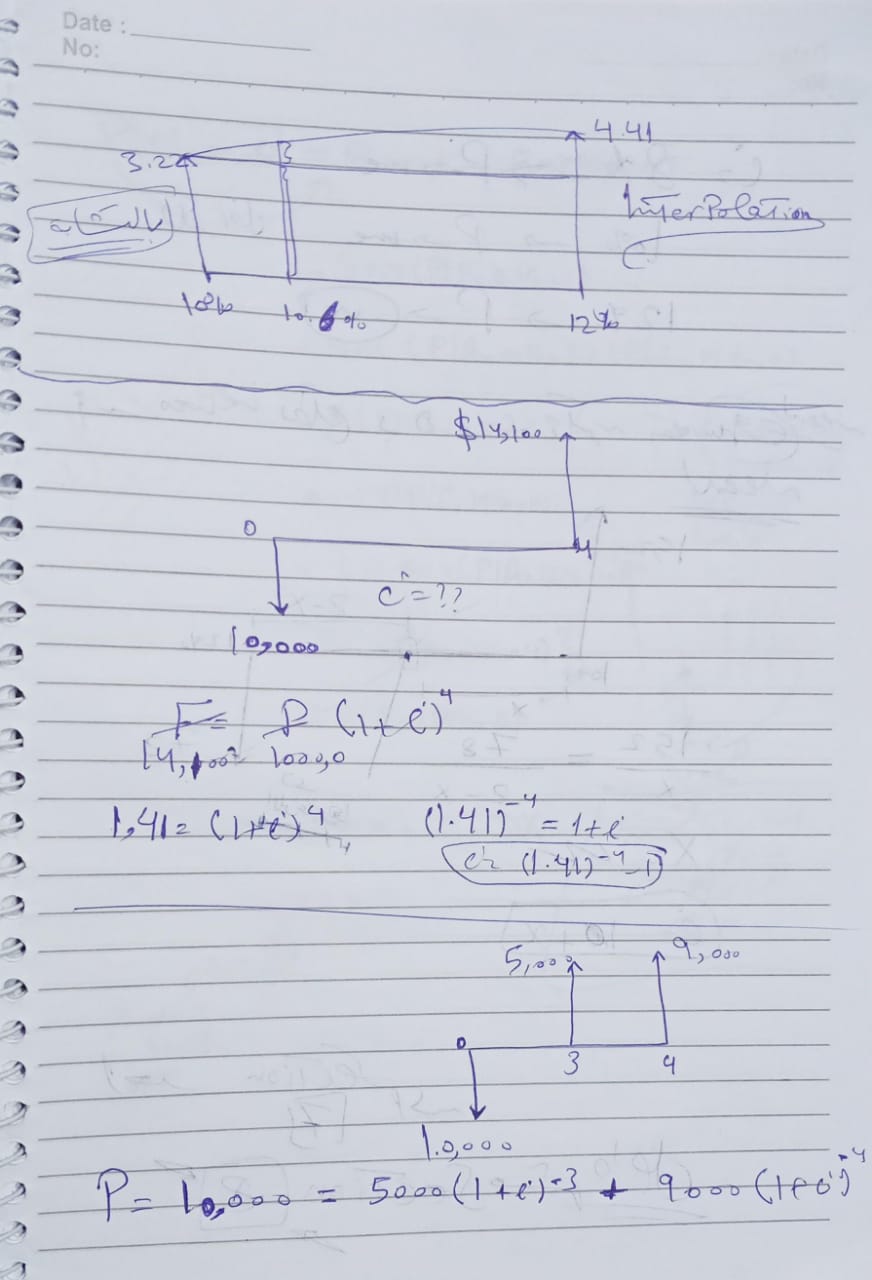 Date :
No:
4.41
3.22
InterPolation
10% 10.6% 12%
$14,100
0 4
i = ??
10,000
F = P (1+i)^4
14,100 = 1000,0
1,41 = (1+i)^4 (1.41)^-4 = 1+i
i = (1.41)^-4 - 1
5,000 9,000
0 3 4
10,000
P = 10,000 = 5000(1+i)^-3 + 9000(1+i)^-4